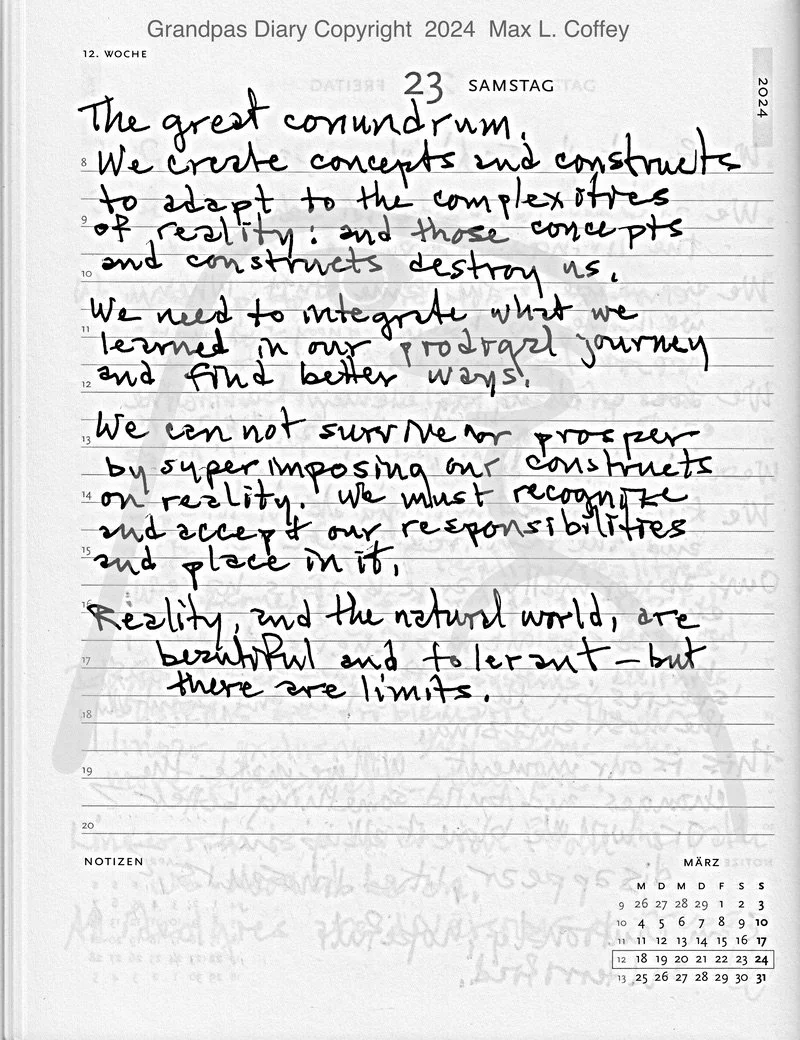 Grandpas Diary Copyright 2024 Max L. Coffey
12. WOCHE
23 SAMSTAG
2024
The great conundrum.
8 We create concepts and constructs
to adapt to the complexities
9 of reality: and those concepts
10 and constructs destroy us.
We need to integrate what we
11 learned in our prodigal journey
12 and find better ways.
13 We can not survive or prosper
by superimposing our constructs
14 on reality. We must recognize
and accept our responsibilities
15 and place in it.
16 Reality, and the natural world, are
17 beautiful and tolerant – but
there are limits.
18
19
20
NOTIZEN
MÄRZ
M D M D F S S
9 26 27 28 29 1 2 3
10 4 5 6 7 8 9 10
11 11 12 13 14 15 16 17
12 18 19 20 21 22 23 24
13 25 26 27 28 29 30 31